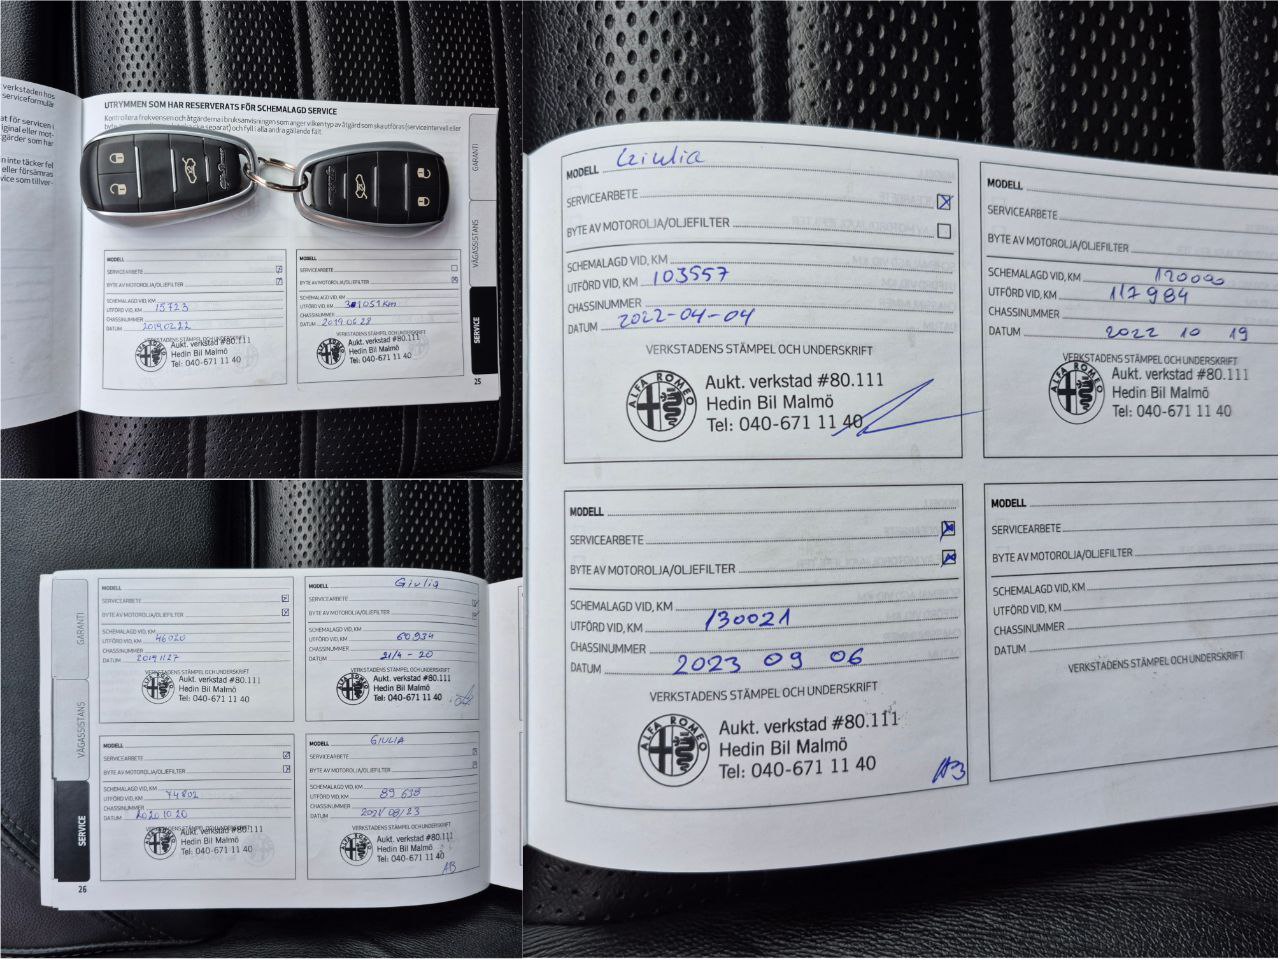 verkstaden hos
serviceformulär
UTRYMMEN SOM HAR RESERVERATS FÖR SCHEMALAGD SERVICE
Kontrollera frekvensen och åtgärderna i bruksanvisningen som anger vilken typ av åtgärd som ska utföras (serviceintervall eller
separat) och fyll i alla andra gällande fält.
at för servicen i
iginal eller mot-
tgärder som har
n inte täcker fel
eller försämras
vice som tillver-
GARANTI
VÄGASSISTANS
SERVICE
MODELL
SERVICEARBETE
BYTE AV MOTOROLJA/OLJEFILTER
SCHEMALAGD VID, KM
UTFÖRD VID, KM 15723
CHASSINUMMER
DATUM 2019.02.22
VERKSTADENS STÄMPEL OCH UNDERSKRIFT
Aukt. verkstad #80.111
Hedin Bil Malmö
Tel: 040-671 11 40
MODELL
SERVICEARBETE
BYTE AV MOTOROLJA/OLJEFILTER
SCHEMALAGD VID, KM
UTFÖRD VID, KM 31051 km
CHASSINUMMER
DATUM 2019.06.28
VERKSTADENS STÄMPEL OCH UNDERSKRIFT
Aukt. verkstad #80.111
Hedin Bil Malmö
Tel: 040-671 11 40
25
GARANTI
VÄGASSISTANS
SERVICE
MODELL
SERVICEARBETE
BYTE AV MOTOROLJA/OLJEFILTER
SCHEMALAGD VID, KM
UTFÖRD VID, KM 46020
CHASSINUMMER
DATUM 20191127
VERKSTADENS STÄMPEL OCH UNDERSKRIFT
ALFA ROMEO
Aukt. verkstad #80.111
Hedin Bil Malmö
Tel: 040-671 11 40
MODELL Giulia
SERVICEARBETE
BYTE AV MOTOROLJA/OLJEFILTER
SCHEMALAGD VID, KM
UTFÖRD VID, KM 60934
CHASSINUMMER
DATUM 21/4-20
VERKSTADENS STÄMPEL OCH UNDERSKRIFT
ALFA ROMEO
Aukt. verkstad #80.111
Hedin Bil Malmö
Tel: 040-671 11 40
MODELL
SERVICEARBETE
BYTE AV MOTOROLJA/OLJEFILTER
SCHEMALAGD VID, KM
UTFÖRD VID, KM 74802
CHASSINUMMER
DATUM 20201020
VERKSTADENS STÄMPEL OCH UNDERSKRIFT
Aukt. verkstad #80.111
Hedin Bil Malmö
Tel: 040-671 11 40
MODELL GIULIA
SERVICEARBETE
BYTE AV MOTOROLJA/OLJEFILTER
SCHEMALAGD VID, KM
UTFÖRD VID, KM
CHASSINUMMER
DATUM 2021/08/23
VERKSTADENS STÄMPEL OCH UNDERSKRIFT
Aukt. verkstad #80.111
Hedin Bil Malmö
Tel: 040-671 11 40
AB
26
MODELL Giulia
SERVICEARBETE
BYTE AV MOTOROLJA/OLJEFILTER
SCHEMALAGD VID, KM
UTFÖRD VID, KM 103557
CHASSINUMMER
DATUM 2022-04-04
VERKSTADENS STÄMPEL OCH UNDERSKRIFT
ALFA ROMEO
Aukt. verkstad #80.111
Hedin Bil Malmö
Tel: 040-671 11 40
MODELL
SERVICEARBETE
BYTE AV MOTOROLJA/OLJEFILTER
SCHEMALAGD VID, KM 120000
UTFÖRD VID, KM 117984
CHASSINUMMER
DATUM 2022 10 19
VERKSTADENS STÄMPEL OCH UNDERSKRIFT
ALFA ROMEO
Aukt. verkstad #80.111
Hedin Bil Malmö
Tel: 040-671 11 40
MODELL
SERVICEARBETE
BYTE AV MOTOROLJA/OLJEFILTER
SCHEMALAGD VID, KM
UTFÖRD VID, KM 130021
CHASSINUMMER
DATUM 2023 09 06
VERKSTADENS STÄMPEL OCH UNDERSKRIFT
ALFA ROMEO
Aukt. verkstad #80.111
Hedin Bil Malmö
Tel: 040-671 11 40
AB
MODELL
SERVICEARBETE
BYTE AV MOTOROLJA/OLJEFILTER
SCHEMALAGD VID, KM
UTFÖRD VID, KM
CHASSINUMMER
DATUM
VERKSTADENS STÄMPEL OCH UNDERSKRIFT